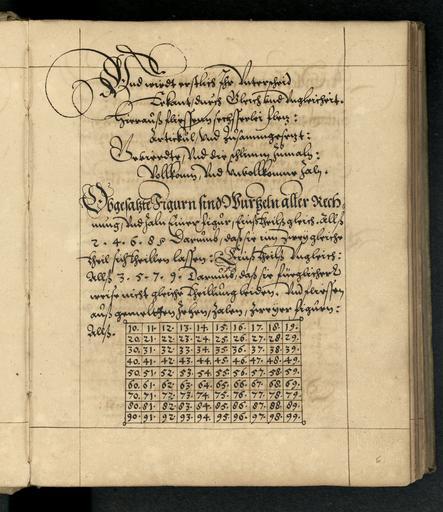 Und wirdt erstlich Ihr Unterscheid
Erkant, durch Gleich und Ungleicheit.
Hierauß fliessenn, sechsserlei
Artickul, und Zusamengesetzt:
Gevierdte, Und die
Volkom, Und unvolkomne Zaln.
Obgesatzte Figurn sind Wurtzeln aller Rech
nung Und Zaln Einer figur, Eins theils gleich. Allß
2. 4. 6. 8 Darumb, daß sie inn Zwey gleiche
theil sich theilen lassen: Eins theils Ungleich:
Allß 3. 5. 7. 9. Darumb, daß sie
weise nicht gleiche theilung leiden. Und fliessen
auß Zehen, Zalen, Zweyer figuren:
Allß.
10. 11. 12. 13. 14. 15. 16. 17. 18. 19.
20. 21. 22. 23. 24. 25. 26. 27. 28. 29.
30. 31. 32. 33. 34. 35. 36. 37. 38. 39.
40. 41. 42. 43. 44. 45. 46. 47. 48. 49.
50. 51. 52. 53. 54. 55. 56. 57. 58. 59.
60. 61. 62. 63. 64. 65. 66. 67. 68. 69.
70. 71. 72. 73. 74. 75. 76. 77. 78. 79.
80. 81. 82. 83. 84. 85. 86. 87. 88. 89.
90. 91. 92. 93. 94. 95. 96. 97. 98. 99.